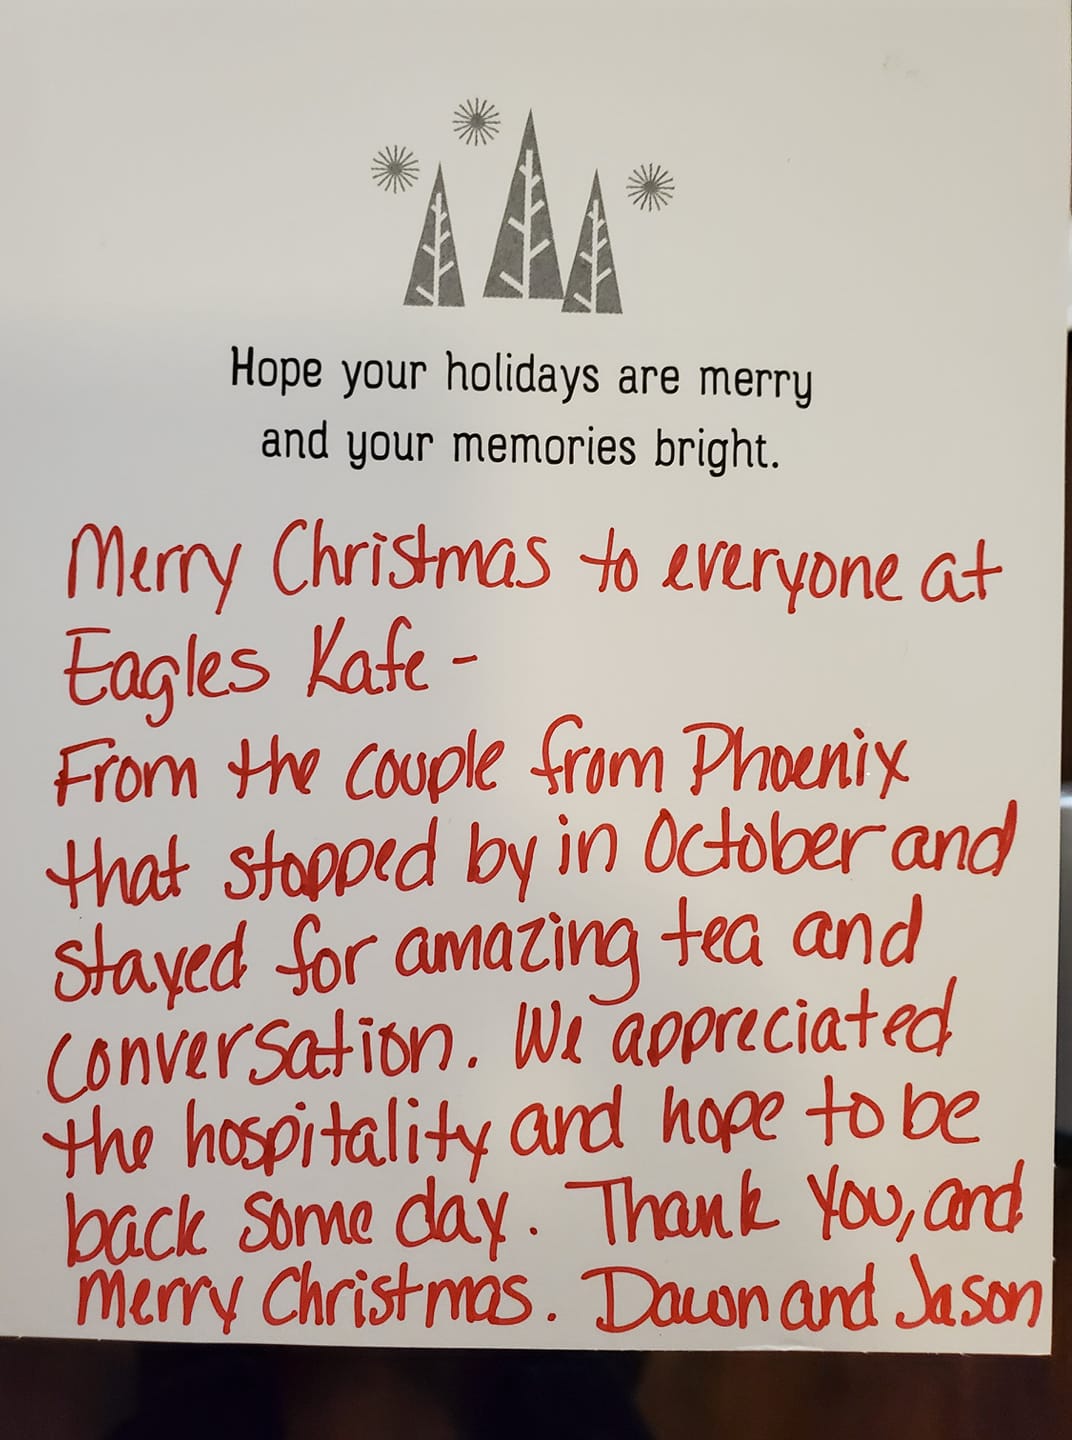 Hope your holidays are merry
and your memories bright.
Merry Christmas to everyone at
Eagles Kafe -
From the couple from Phoenix
that stopped by in October and
stayed for amazing tea and
conversation. We appreciated
the hospitality and hope to be
back some day. Thank you, and
Merry Christmas. Dawn and Jason